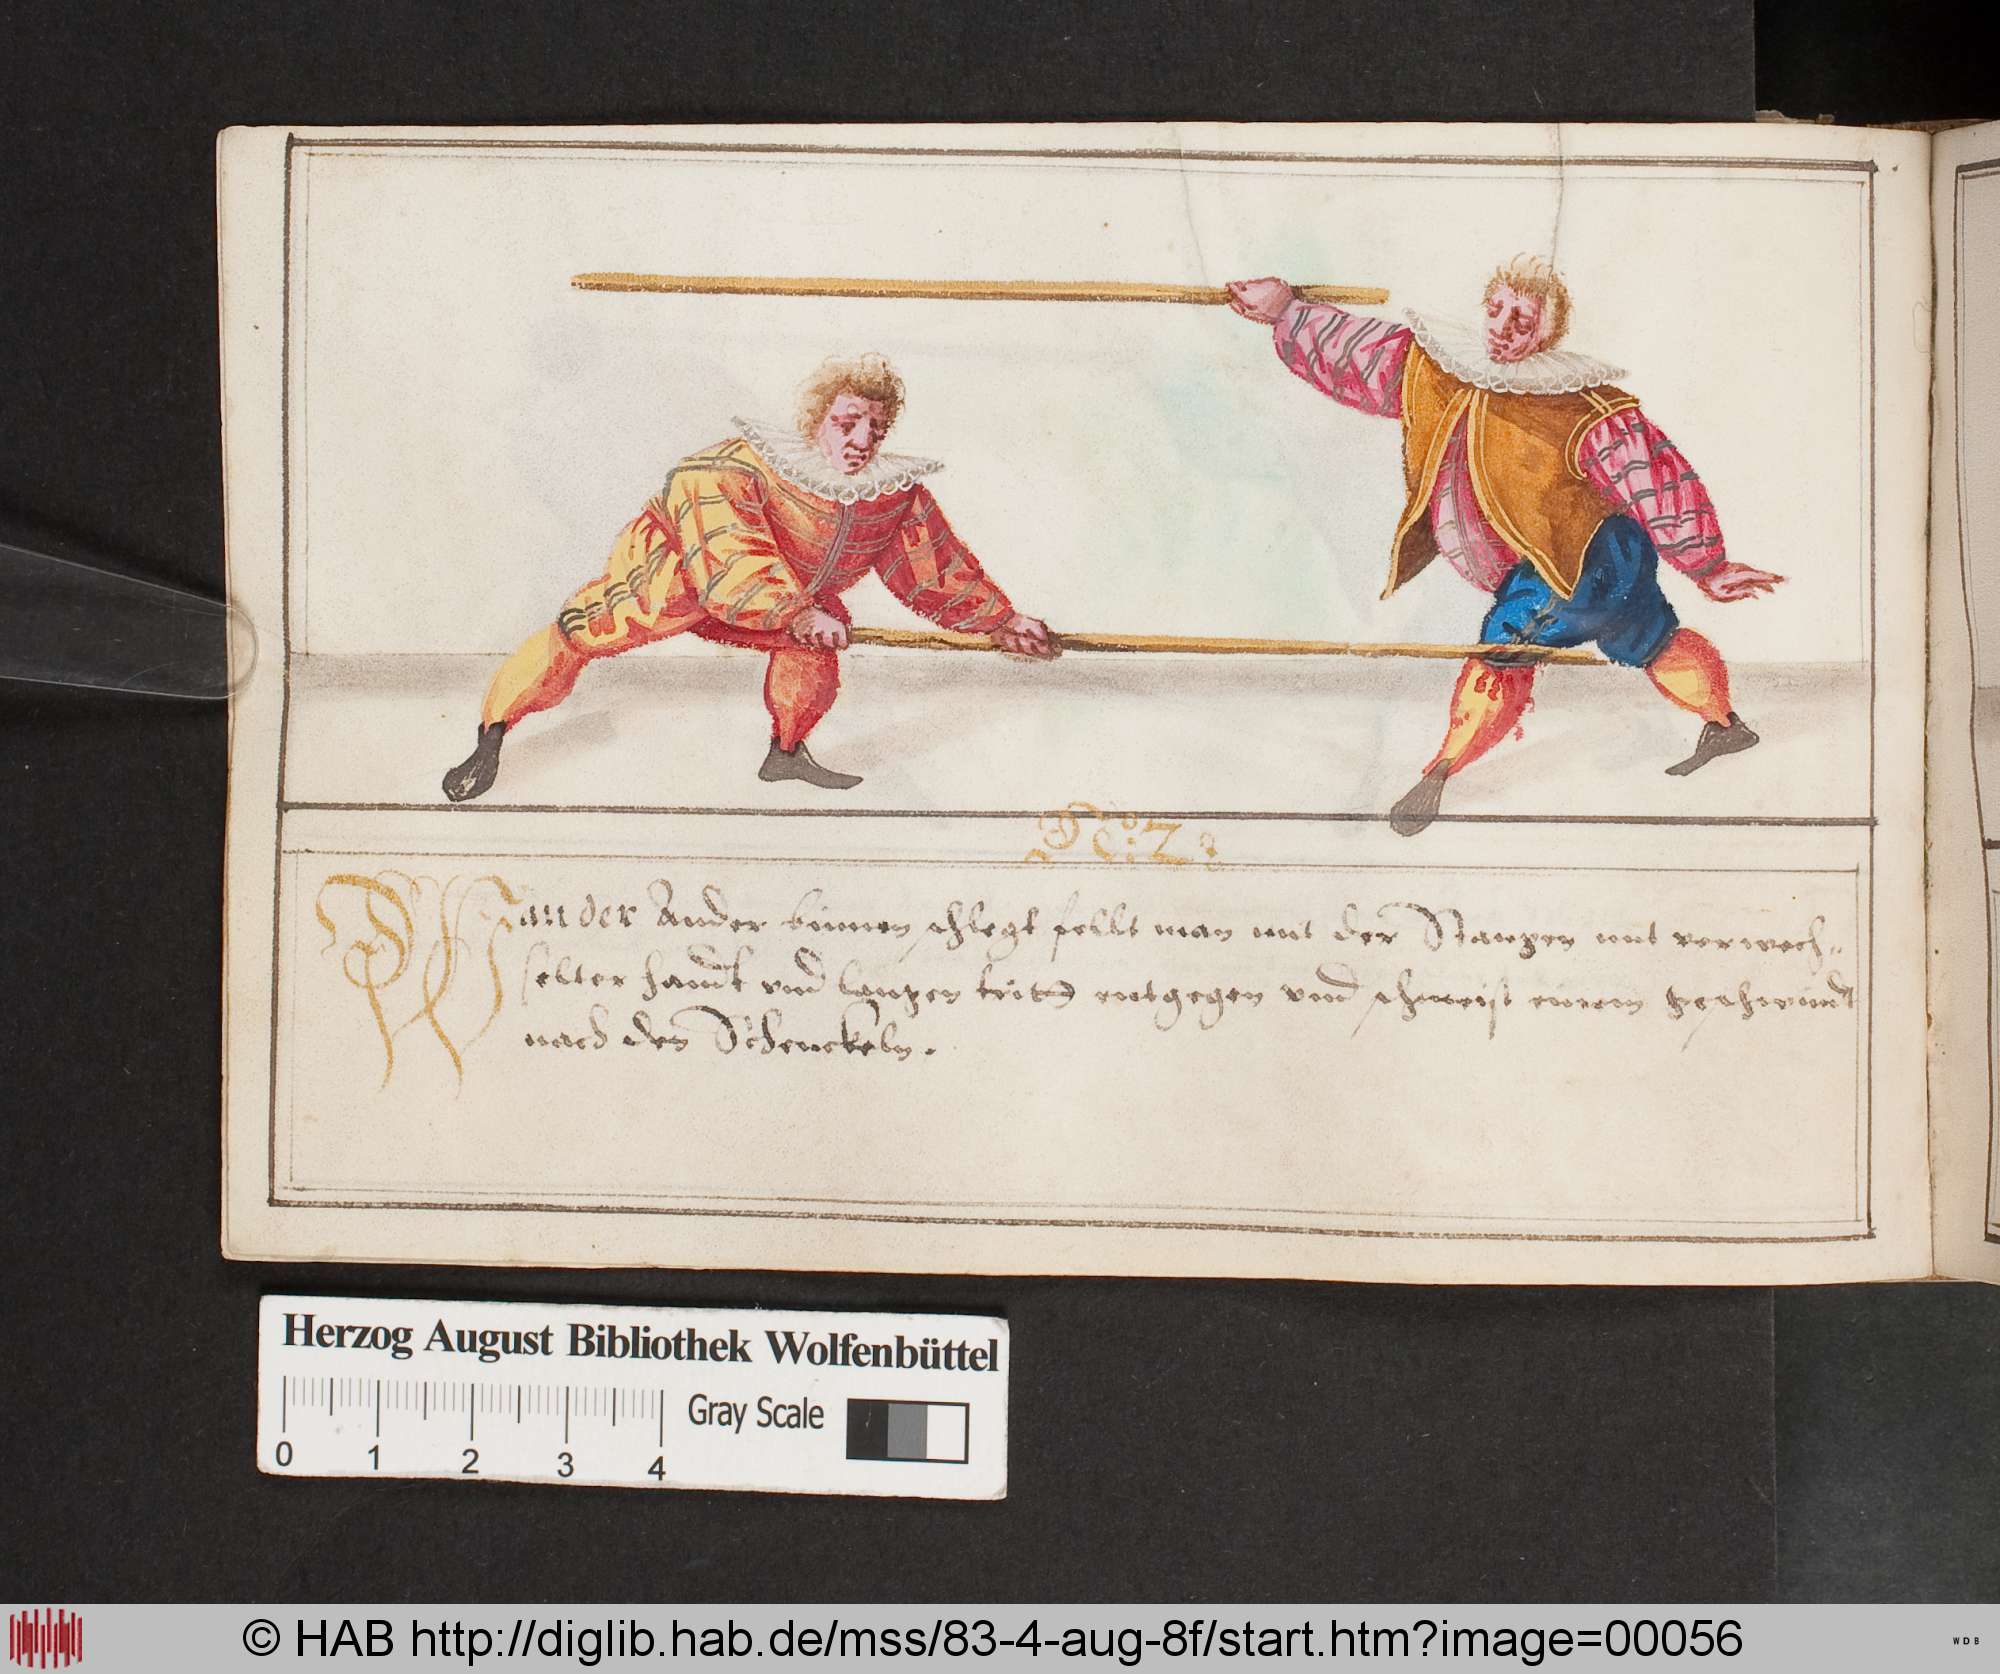 Wan der Ander binnen schlegt fellt man mit der Stangen mit verwech-
selter handt vnd langen tritt entgegen vnd schmeist einem geschwindt
nach den Schenckeln.
Herzog August Bibliothek Wolfenbüttel
Gray Scale
0 1 2 3 4
© HAB http://diglib.hab.de/mss/83-4-aug-8f/start.htm?image=00056
WDB